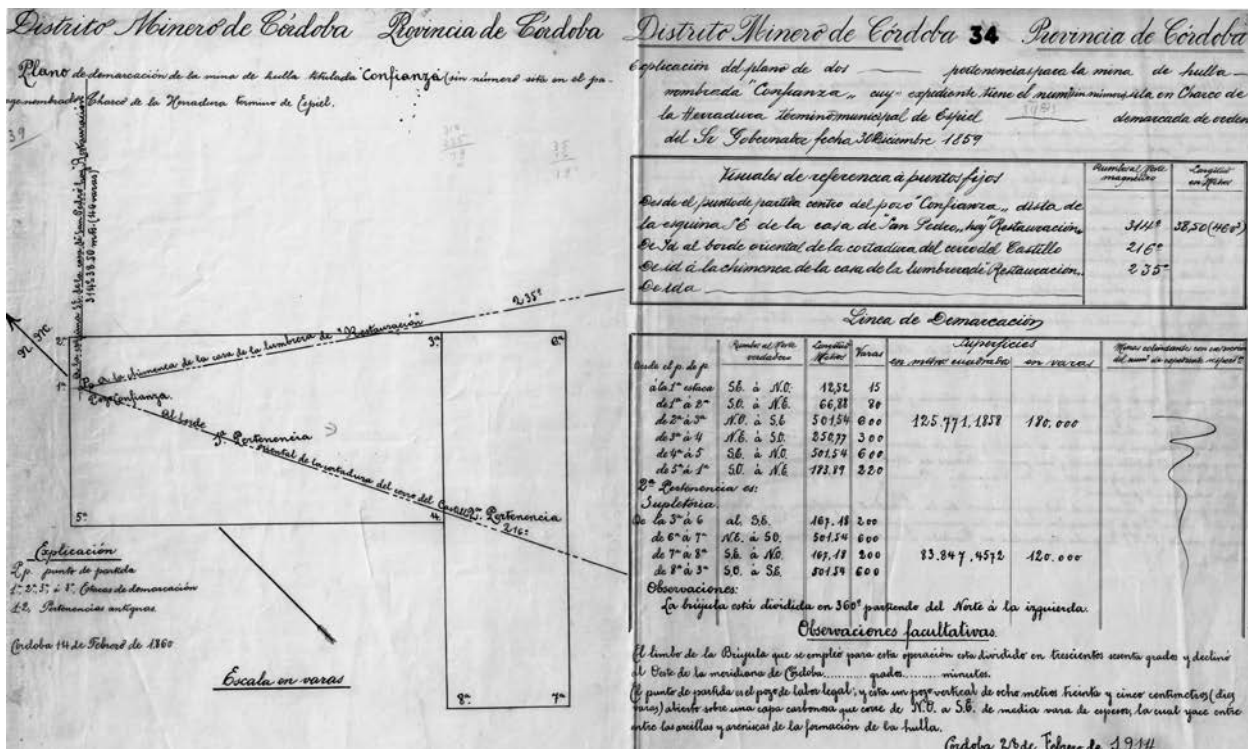 Distrito Minero de Córdoba Provincia de Córdoba
Plano de demarcación de la mina de hulla titulada "Confianza" (sin número sita en el pa-
nombrado Charco de la Herradura termino de Espiel.
39
314º 38.50 mts. (46 varas)
N M
235º
A la chimenea de la casa de la lumbrera de "Restauración"
2ª
3ª
6ª
1ª
P.p.
Pozo Confianza.
Al borde oriental de la cortadura del cerro del Castillo
1ª Pertenencia
2ª Pertenencia
216º
5ª
4
8ª
7ª
Explicación
P.p. punto de partida
1ª 2ª 3ª á 8ª Estacas de demarcación
1-2, Pertenencias antiguas
Córdoba 14 de Febrero de 1860
Escala en varas
Distrito Minero de Córdoba 34 Provincia de Córdoba
Explicación del plano de dos pertenencias para la mina de hulla
nombrada "Confianza" cuyo expediente tiene el num sin número, sita en Charco de
la Herradura término municipal de Espiel demarcada de orden
del Sr Gobernador fecha 30 Diciembre 1859
Visuales de referencia á puntos fijos Rumbos al Norte magnético Longitud en Metros
Desde el punto de partida centro del pozo "Confianza" dista de
la esquina SE de la casa de "San Pedro" hoy "Restauración" 314º 38,50 (46 vs)
De Id al borde oriental de la cortadura del cerro del Castillo 216º
De id á la chimenea de la casa de la lumbrera de "Restauración" 235º
De id a
Linea de Demarcación
Desde el p. de p. Rumbo al Norte verdadero Longitud Metros Varas Superficies en metros cuadrados en varas
á la 1ª estaca S.E. á N.O. 12,52 15
de 1ª á 2ª S.O. á N.E. 66,88 80
de 2ª á 3ª N.O. á S.E 501,54 600 125.771,1858 180.000
de 3ª á 4 N.E. á S.O. 250,77 300
de 4ª á 5 S.E. á N.O. 501,54 600
de 5ª á 1ª S.O. á N.E 183,89 220
2ª Pertenencia es:
Supletoria.
De la 3ª á 6 al S.E. 167,18 200
de 6ª á 7ª N.E. á S.O. 501,54 600
de 7ª á 8ª S.E. á N.O. 167,18 200 83.847,4572 120.000
de 8ª á 3ª S.O. á S.E. 501,54 600
Observaciones:
La brújula está dividida en 360º partiendo del Norte á la izquierda.
Observaciones facultativas.
El limbo de la Brújula que se empleó para esta operación esta dividido en trescientos sesenta grados y declinó
al Oeste de la meridiana de Córdoba........grados........minutos.
El punto de partida es el pozo de labor legal; y esta un pozo vertical de ocho metros treinta y cinco centimetros (diez
varas) abierto sobre una capa carbonosa que corre de N.O. a S.E. de media vara de espesor, la cual yace entre
entre las arcillas y areniscas de la formación de la hulla.
Córdoba 28 de Febrero de 1914